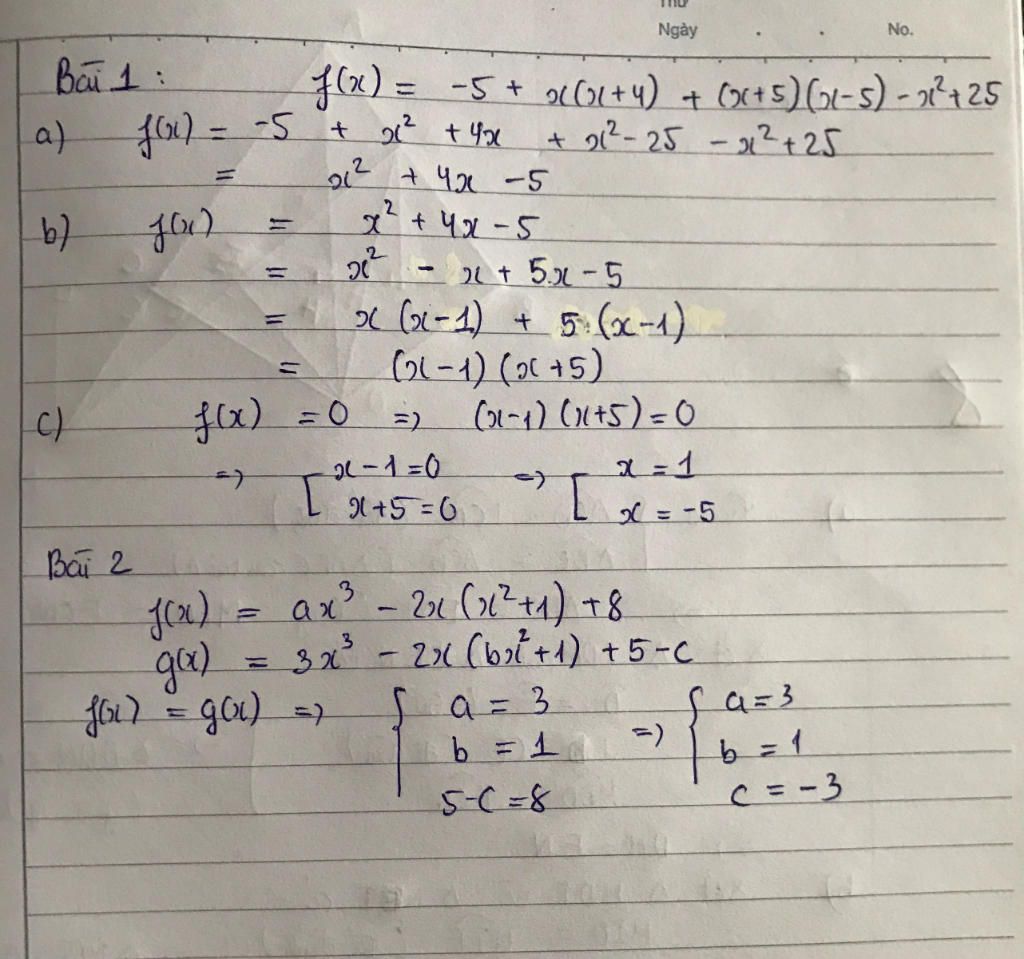 Thứ
Ngày . . No.
Bài 1 : f(x) = -5 + x(x+4) + (x+5)(x-5) - x²+25
a) f(x) = -5 + x² + 4x + x² - 25 - x² + 25
= x² + 4x - 5
b) f(x) = x² + 4x - 5
= x² - x + 5.x - 5
= x (x-1) + 5.(x-1)
= (x-1) (x+5)
c) f(x) = 0 => (x-1) (x+5) = 0
=> [ x-1=0 => [ x = 1
x+5=0 x = -5
Bài 2
f(x) = ax³ - 2x (x²+1) + 8
g(x) = 3x³ - 2x (bx²+1) + 5-c
f(x) = g(x) => { a = 3 => { a=3
b = 1 b = 1
5-c=8 c = -3